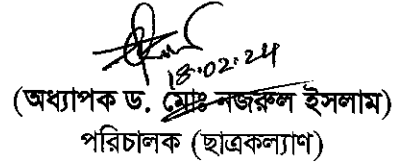 18.02.24
(অধ্যাপক ড. মোঃ নজরুল ইসলাম)
পরিচালক (ছাত্রকল্যাণ)